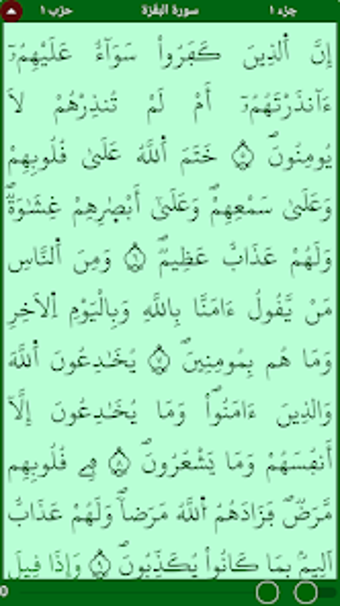 جزء ١ سورة البقرة حزب ١
إِنَّ اَ۬لذِينَ كَفَرُواْ سَوَآءٌ عَلَيْهِمُۥٓ
ءَآنذَرْتَهُمُۥٓ أَمْ لَمْ تُنذِرْهُمْ لَا
يُومِنُونَۖ ۝٥ خَتَمَ اَ۬للَّهُ عَلَىٰ قُلُوبِهِمْ
وَعَلَىٰ سَمْعِهِمْۖ وَعَلَىٰٓ أَبْصٰ۪رِهِمْ غِشَٰوَةٞۖ
وَلَهُمْ عَذَابٌ عَظِيمٞۖ ۝٦ وَمِنَ اَ۬لنَّاسِ
مَنْ يَّقُولُ ءَامَنَّا بِاللَّهِ وَبِالْيَوْمِ اِ۬لَاخِرِ
وَمَا هُم بِمُومِنِينَۖ ۝٧ يُخَٰدِعُونَ اَ۬للَّهَ
وَالذِينَ ءَامَنُواْۖ وَمَا يُخَٰدِعُونَ إِلَّآ
أَنفُسَهُمْ وَمَا يَشْعُرُونَۖ ۝٨ فِے قُلُوبِهِم
مَّرَضٞۖ فَزَادَهُمُ اُ۬للَّهُ مَرَضاٗۖ وَلَهُمْ عَذَابٌ
اَلِيمُۢ بِمَا كَانُواْ يُكَذِّبُونَۖ ۝٩ وَإِذَا قِيلَ